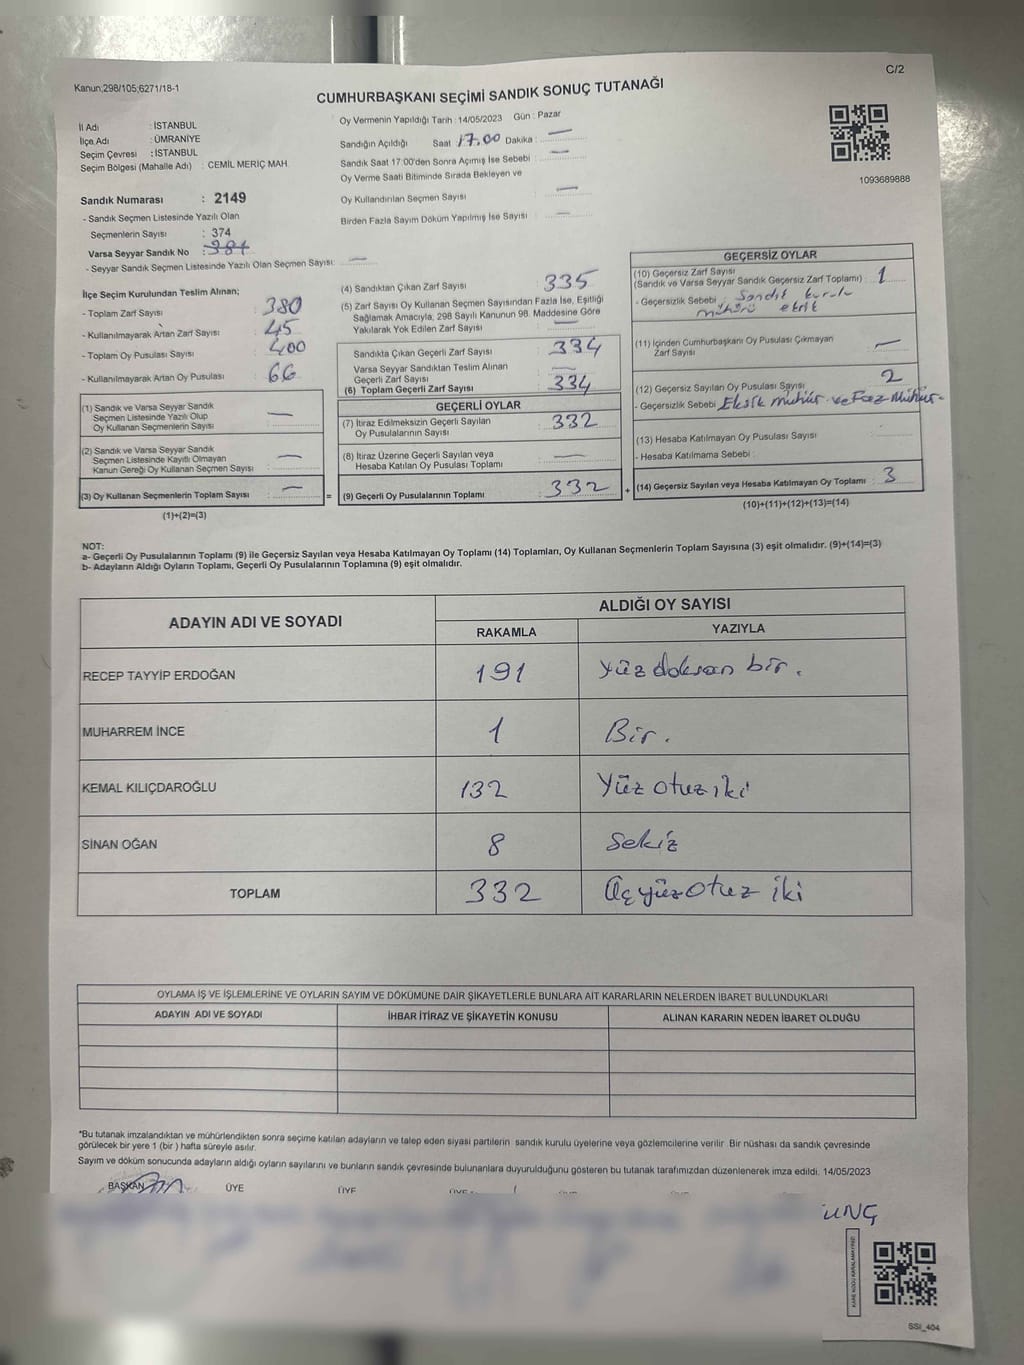 Kanun;298/105;6271/18-1
C/2
CUMHURBAŞKANI SEÇİMİ SANDIK SONUÇ TUTANAĞI
İl Adı : İSTANBUL
İlçe Adı : ÜMRANİYE
Seçim Çevresi : İSTANBUL
Seçim Bölgesi (Mahalle Adı) : CEMİL MERİÇ MAH.
Sandık Numarası : 2149
- Sandık Seçmen Listesinde Yazılı Olan
Seçmenlerin Sayısı : 374
Varsa Seyyar Sandık No :
- Seyyar Sandık Seçmen Listesinde Yazılı Olan Seçmen Sayısı: —
Oy Vermenin Yapıldığı Tarih : 14/05/2023 Gün : Pazar
Sandığın Açıldığı Saat 17.00 Dakika : —
Sandık Saat 17:00'den Sonra Açımış İse Sebebi : —
Oy Verme Saati Bitiminde Sırada Bekleyen ve
Oy Kullandırılan Seçmen Sayısı : —
Birden Fazla Sayım Döküm Yapılmış İse Sayısı : —
1093689888
İlçe Seçim Kurulundan Teslim Alınan;
- Toplam Zarf Sayısı : 380
- Kullanılmayarak Artan Zarf Sayısı : 45
- Toplam Oy Pusulası Sayısı : 400
- Kullanılmayarak Artan Oy Pusulası : 66
(1) Sandık ve Varsa Seyyar Sandık
Seçmen Listesinde Yazılı Olup
Oy Kullanan Seçmenlerin Sayısı : —
(2) Sandık ve Varsa Seyyar Sandık
Seçmen Listesinde Kayıtlı Olmayan
Kanun Gereği Oy Kullanan Seçmen Sayısı : —
(3) Oy Kullanan Seçmenlerin Toplam Sayısı : —
(1)+(2)=(3)
=
(4) Sandıktan Çıkan Zarf Sayısı : 335
(5) Zarf Sayısı Oy Kullanan Seçmen Sayısından Fazla İse, Eşitliği
Sağlamak Amacıyla, 298 Sayılı Kanunun 98. Maddesine Göre
Yakılarak Yok Edilen Zarf Sayısı : —
Sandıkta Çıkan Geçerli Zarf Sayısı : 334
Varsa Seyyar Sandıktan Teslim Alınan
Geçerli Zarf Sayısı : —
(6) Toplam Geçerli Zarf Sayısı : 334
GEÇERLİ OYLAR
(7) İtiraz Edilmeksizin Geçerli Sayılan
Oy Pusulalarının Sayısı : 332
(8) İtiraz Üzerine Geçerli Sayılan veya
Hesaba Katılan Oy Pusulası Toplamı : —
(9) Geçerli Oy Pusulalarının Toplamı : 332
+
GEÇERSİZ OYLAR
(10) Geçersiz Zarf Sayısı
(Sandık ve Varsa Seyyar Sandık Geçersiz Zarf Toplamı) : 1
- Geçersizlik Sebebi : Sandık kurulu
mührü eksik
(11) İçinden Cumhurbaşkanı Oy Pusulası Çıkmayan
Zarf Sayısı : —
(12) Geçersiz Sayılan Oy Pusulası Sayısı : 2
- Geçersizlik Sebebi Eksik mühür ve Faz Mühür
(13) Hesaba Katılmayan Oy Pusulası Sayısı :
- Hesaba Katılmama Sebebi :
(14) Geçersiz Sayılan veya Hesaba Katılmayan Oy Toplamı : 3
(10)+(11)+(12)+(13)=(14)
NOT:
a- Geçerli Oy Pusulalarının Toplamı (9) ile Geçersiz Sayılan veya Hesaba Katılmayan Oy Toplamı (14) Toplamları, Oy Kullanan Seçmenlerin Toplam Sayısına (3) eşit olmalıdır. (9)+(14)=(3)
b- Adayların Aldığı Oyların Toplamı, Geçerli Oy Pusulalarının Toplamına (9) eşit olmalıdır.
ADAYIN ADI VE SOYADI
ALDIĞI OY SAYISI
RAKAMLA YAZIYLA
RECEP TAYYİP ERDOĞAN 191 Yüz doksan bir.
MUHARREM İNCE 1 Bir.
KEMAL KILIÇDAROĞLU 132 Yüz otuz iki
SİNAN OĞAN 8 Sekiz
TOPLAM 332 Üçyüz otuz iki
OYLAMA İŞ VE İŞLEMLERİNE VE OYLARIN SAYIM VE DÖKÜMÜNE DAİR ŞİKAYETLERLE BUNLARA AİT KARARLARIN NELERDEN İBARET BULUNDUKLARI
ADAYIN ADI VE SOYADI İHBAR İTİRAZ VE ŞİKAYETİN KONUSU ALINAN KARARIN NEDEN İBARET OLDUĞU
*Bu tutanak imzalandıktan ve mühürlendikten sonra seçime katılan adayların ve talep eden siyasi partilerin sandık kurulu üyelerine veya gözlemcilerine verilir. Bir nüshası da sandık çevresinde
görülecek bir yere 1 (bir ) hafta süreyle asılır.
Sayım ve döküm sonucunda adayların aldığı oyların sayılarını ve bunların sandık çevresinde bulunanlara duyurulduğunu gösteren bu tutanak tarafımızdan düzenlenerek imza edildi. 14/05/2023
BAŞKAN ÜYE ÜYE ÜYE
KARE KODU KARALAMAYINIZ!
SSI_404